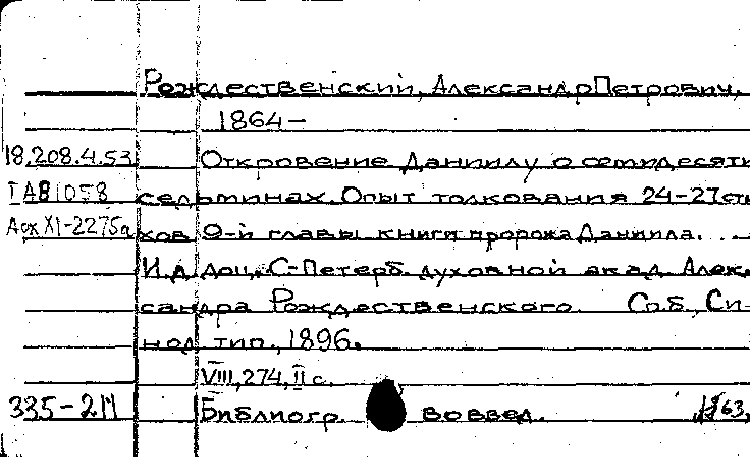 Рождественский, Александр Петрович,
1864–
18.208.4.53 Откровение Даниилу о семидесяти
седьминах. Опыт толкования 24–27 сти-
хов 9-й главы книги пророка Даниила. ...
И.д. доц. С-Петерб. духовной акад. Алек-
сандра Рождественского. Спб, Си-
нод. тип., 1896.
VIII, 274, II с.
335–211 Библиогр. в введ.